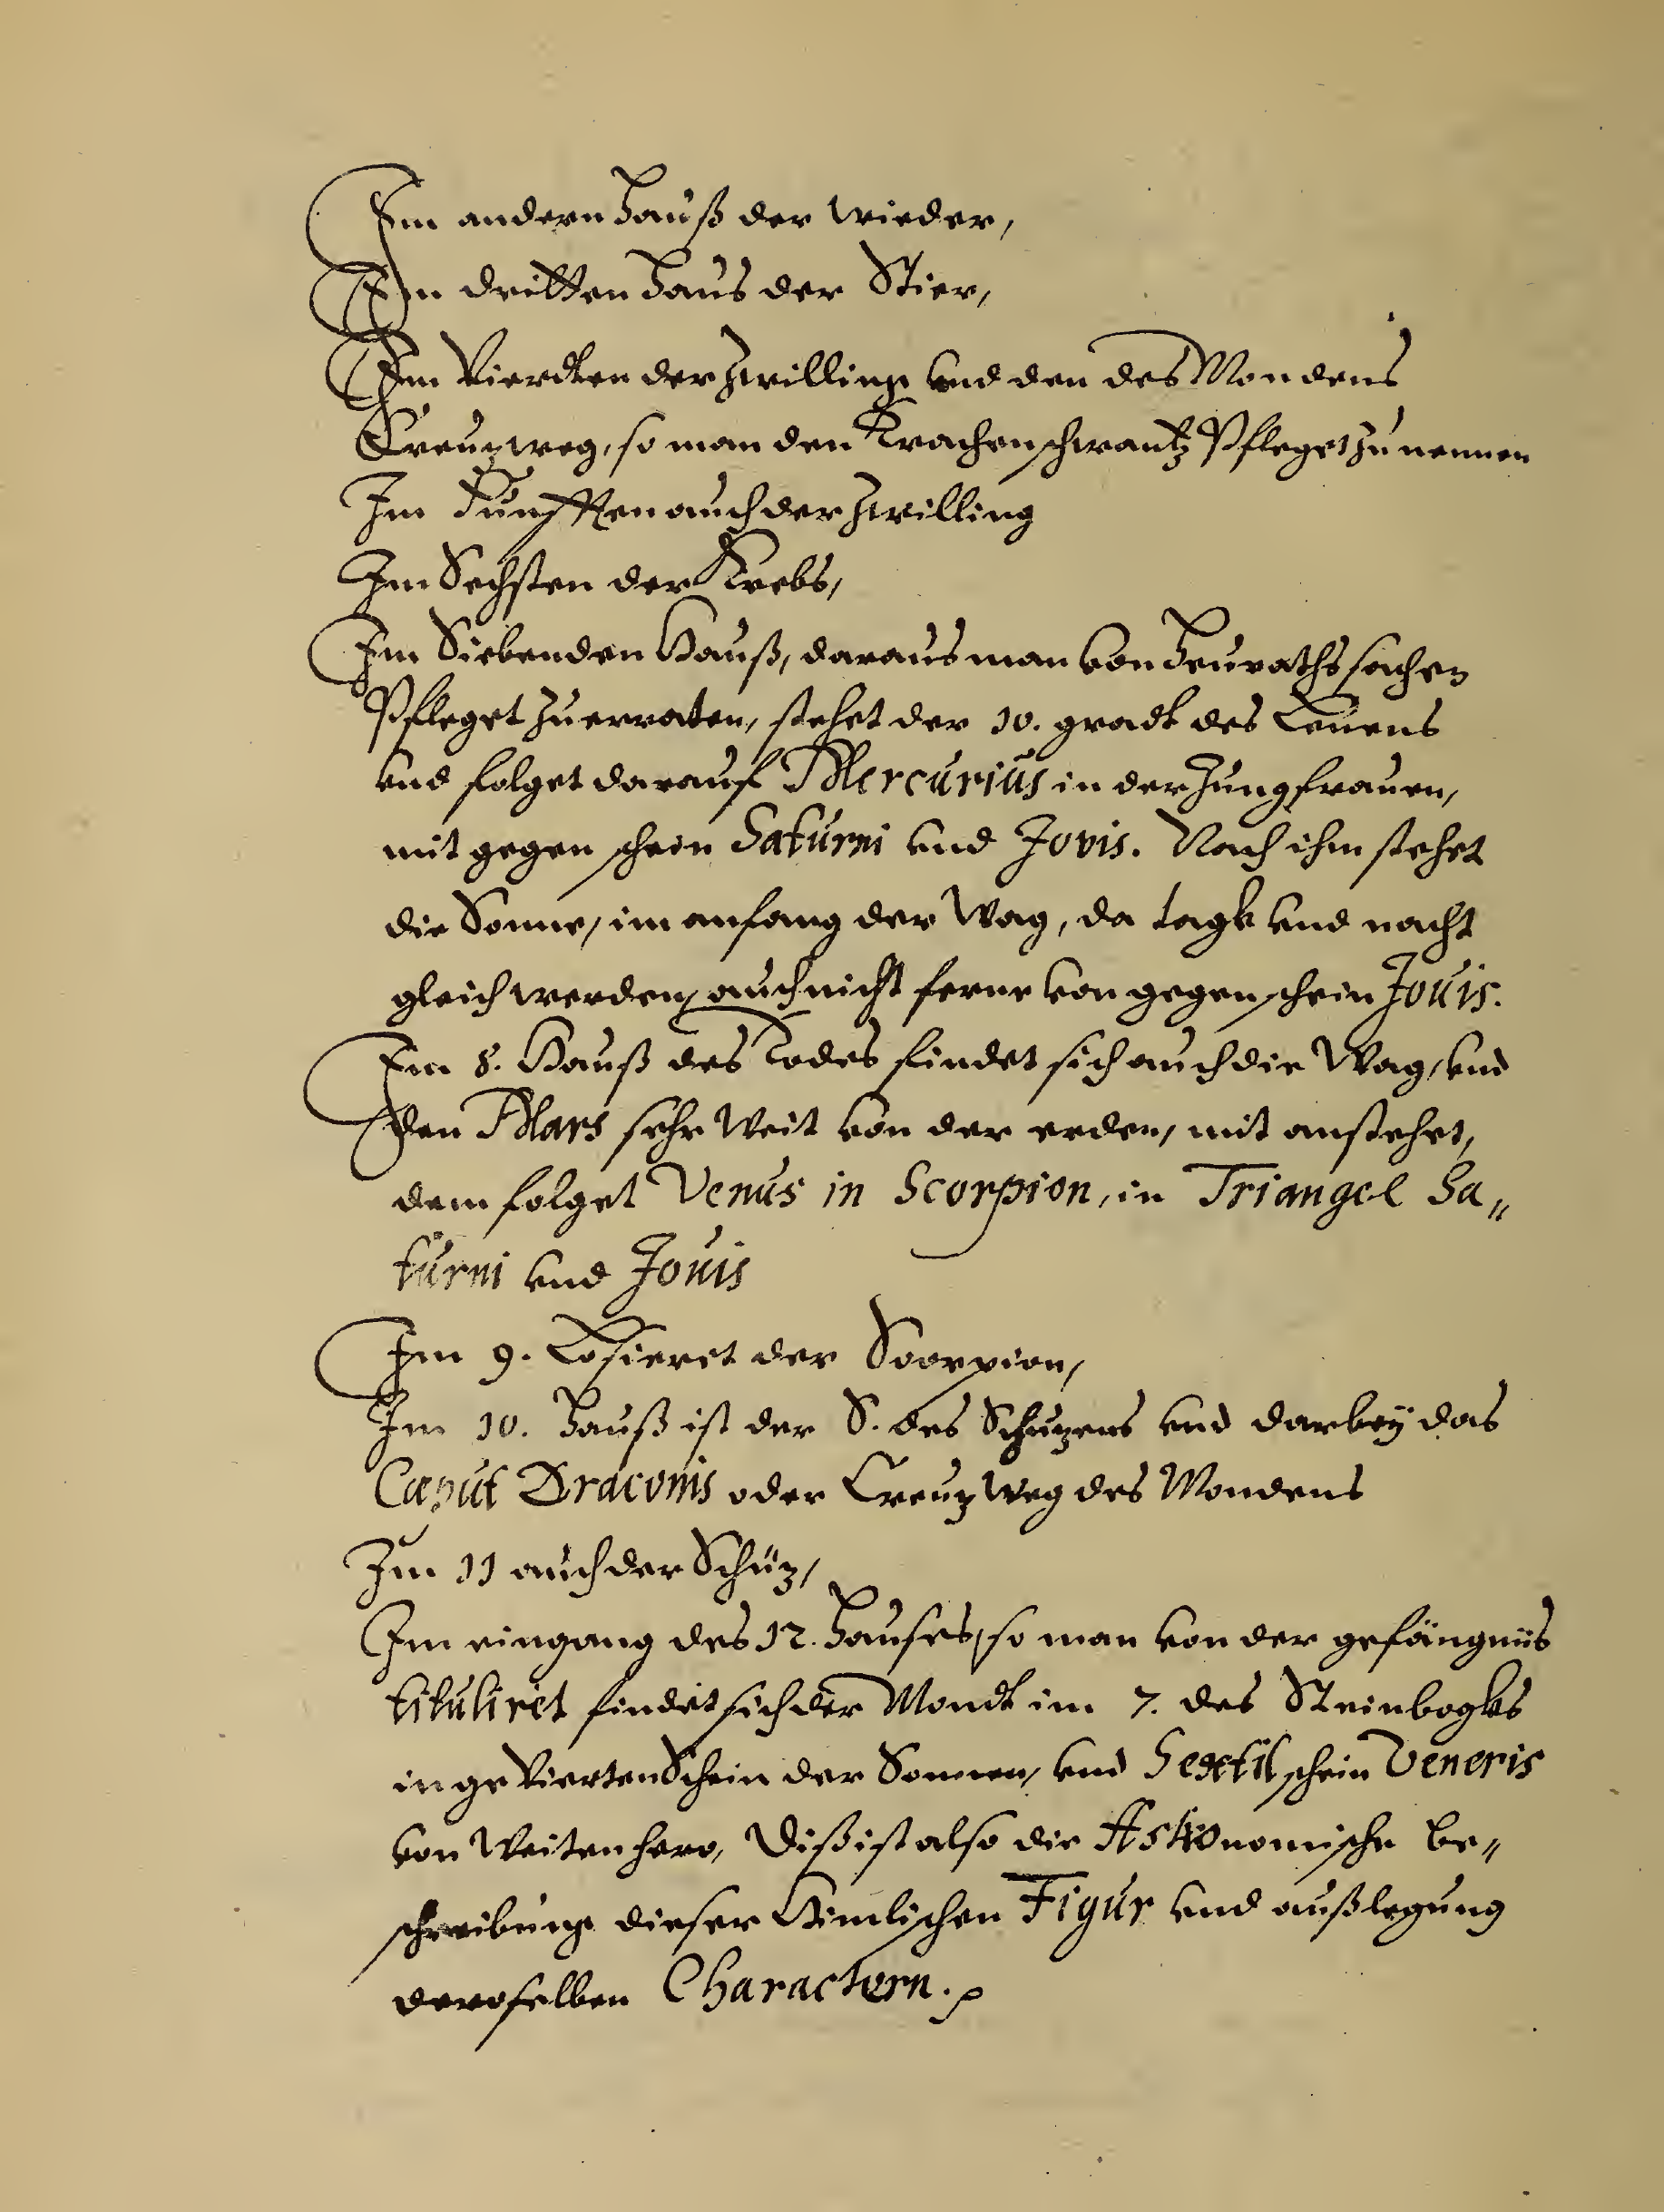 Im andern Hauß der wieder,
Im dritten Haus der Stier,
Im Vierdten der Zwilling vnd den des Mondens
Creuzweg, so man den Trachenschwantz Pfleget zu nennen
Im Fünfften auch der Zwilling
Im Sechsten der Krebs,
Im Siebenden Hauß, daraus man von Heuraths sachen
Pfleget zu errraten, stehet der 10. gradt des Leuens
vnd folget darauf Mercurius in der Jungfrauen,
mit gegenschein Saturni vnd Jovis. Nach ihm stehet
die Sonne, im anfang der Wag, da tagk vnd nacht
gleich werden, auch nicht ferne von gegenschein Jouis.
Im 8. Hauß des Todes findet sich auch die Wag, vnd
den Mars sehr weit von der erden, mit anstehet,
dem folget Venus in Scorpion, in Triangel Sa„
turni vnd Jouis
Im 9. Losieret der Scorpion,
Im 10. Hauß ist der 8. des Schuzens vnd darbeÿ das
Caput Draconis oder Creuz Weg des Mondens
Im 11 auch der Schüz,
Im eingang des 12. Hauses, so man von der gefängnüs
tituliret findet sich der Mondt im 7. des Steinbogks
in geVierten Schein der Sonnen, vnd Sextil schein Veneris
von Weiten hero, Dißist also die Astronomische be„
schreibung dieser Himlischen Figur vnd außlegung
deroselben Charactern.